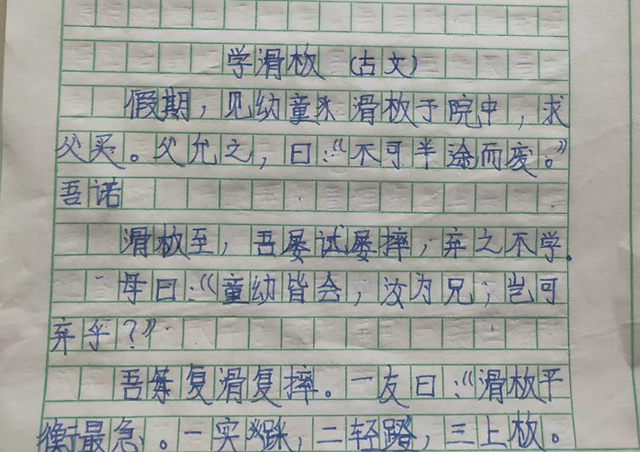 学滑板（古文）
假期，见幼童 滑板于院中，求
父买。父允之，曰：“不可半途而废。”
吾诺
滑板至，吾屡试屡摔，弃之不学。
母曰：“童幼皆会，汝为兄，岂可
弃乎？”
吾 复滑复摔。一友曰：“滑板平
衡最急。一实踩，二轻蹬，三上板。